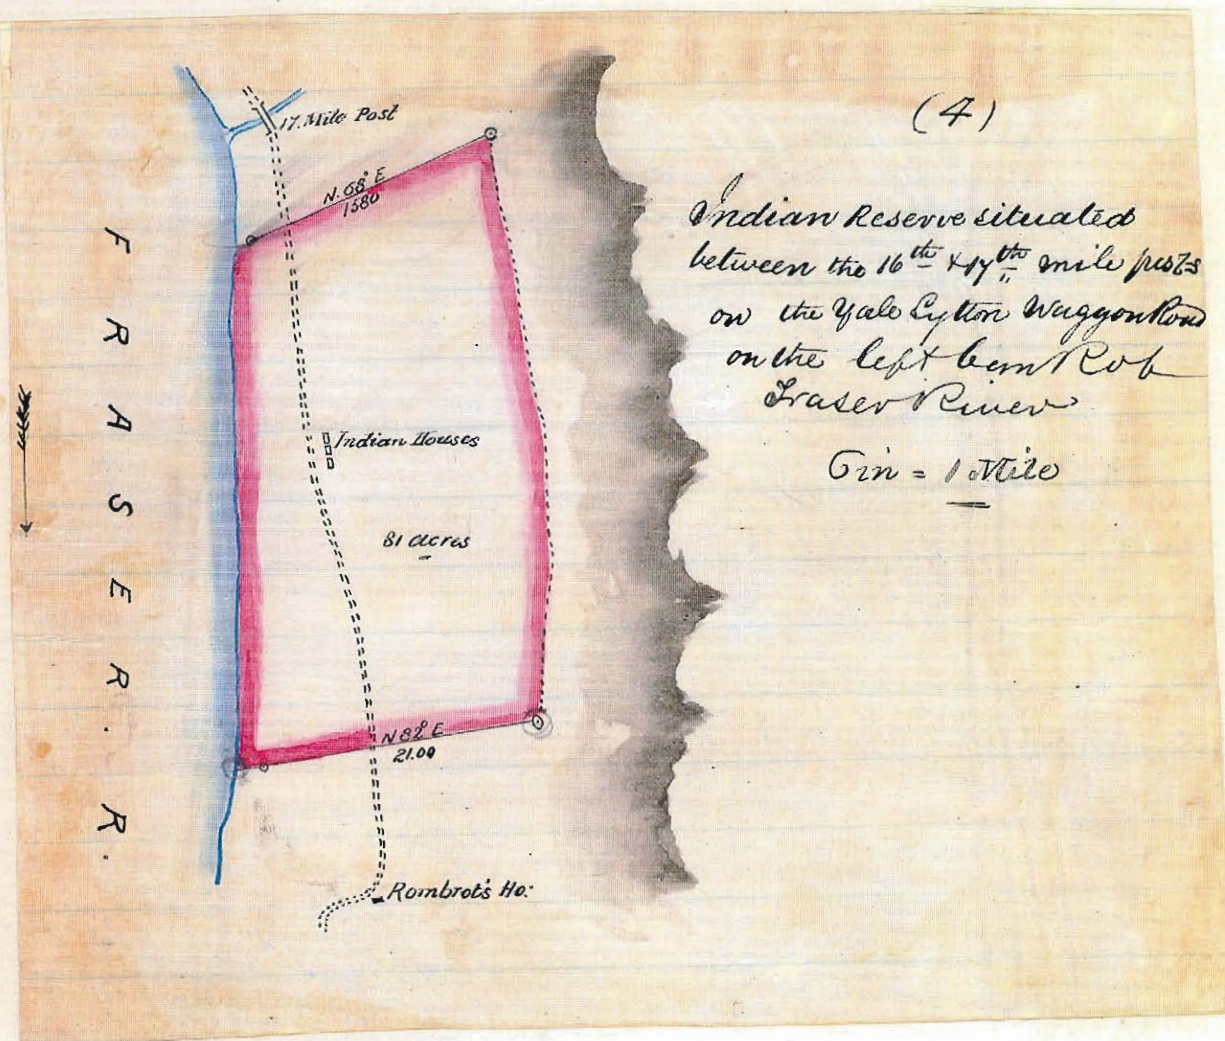 (4)
Indian Reserve situated
between the 16th & 17th mile posts
on the Yale Lytton Waggon Road
on the left bank of
Fraser River
6 in = 1 Mile
17. Mile Post
N. 68° E
1580
FRASER. R.
Indian Houses
81 acres
N 82° E
21.00
Rombrot's Ho: